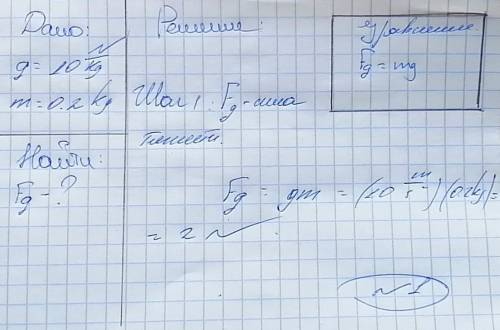 Дано:
g = 10 N/kg
m = 0.2 kg
Найти:
Fg - ?
Решение:
Шаг 1: Fg - сила
тяжести.
Fg = gm = (10 m/s) (0.2kg) =
= 2 N
Уравнение
Fg = mg
№ 1